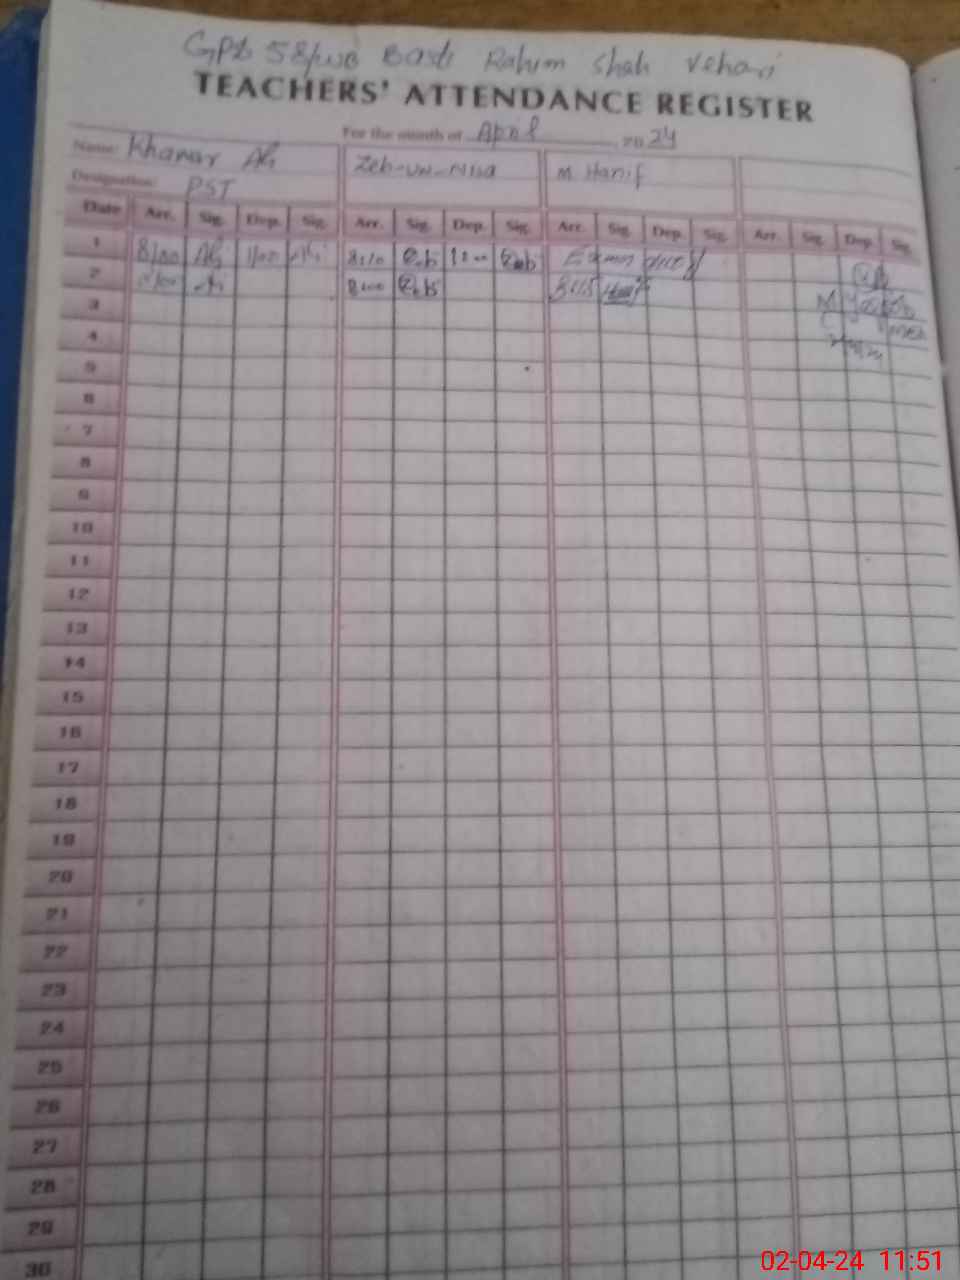 GPS 58/WB Basti Rahim Shah Vehari
TEACHERS' ATTENDANCE REGISTER
For the month of April 2024
Name: Khawar Ali Zeb-un-Nisa M. Hanif
Designation: PST
Date Arr. Sig. Dep. Sig. Arr. Sig. Dep. Sig. Arr. Sig. Dep. Sig. Arr. Sig. Dep. Sig.
1 8/00 Ali 1/00 Ali 8:10 Zeb 1:00 Zeb Exam duty
2 8/00 Ali 8:00 Zeb 8:15 Hanif
3 M
4
5
6
7
8
9
10
11
12
13
14
15
16
17
18
19
20
21
22
23
24
25
26
27
28
29
30
02-04-24 11:51